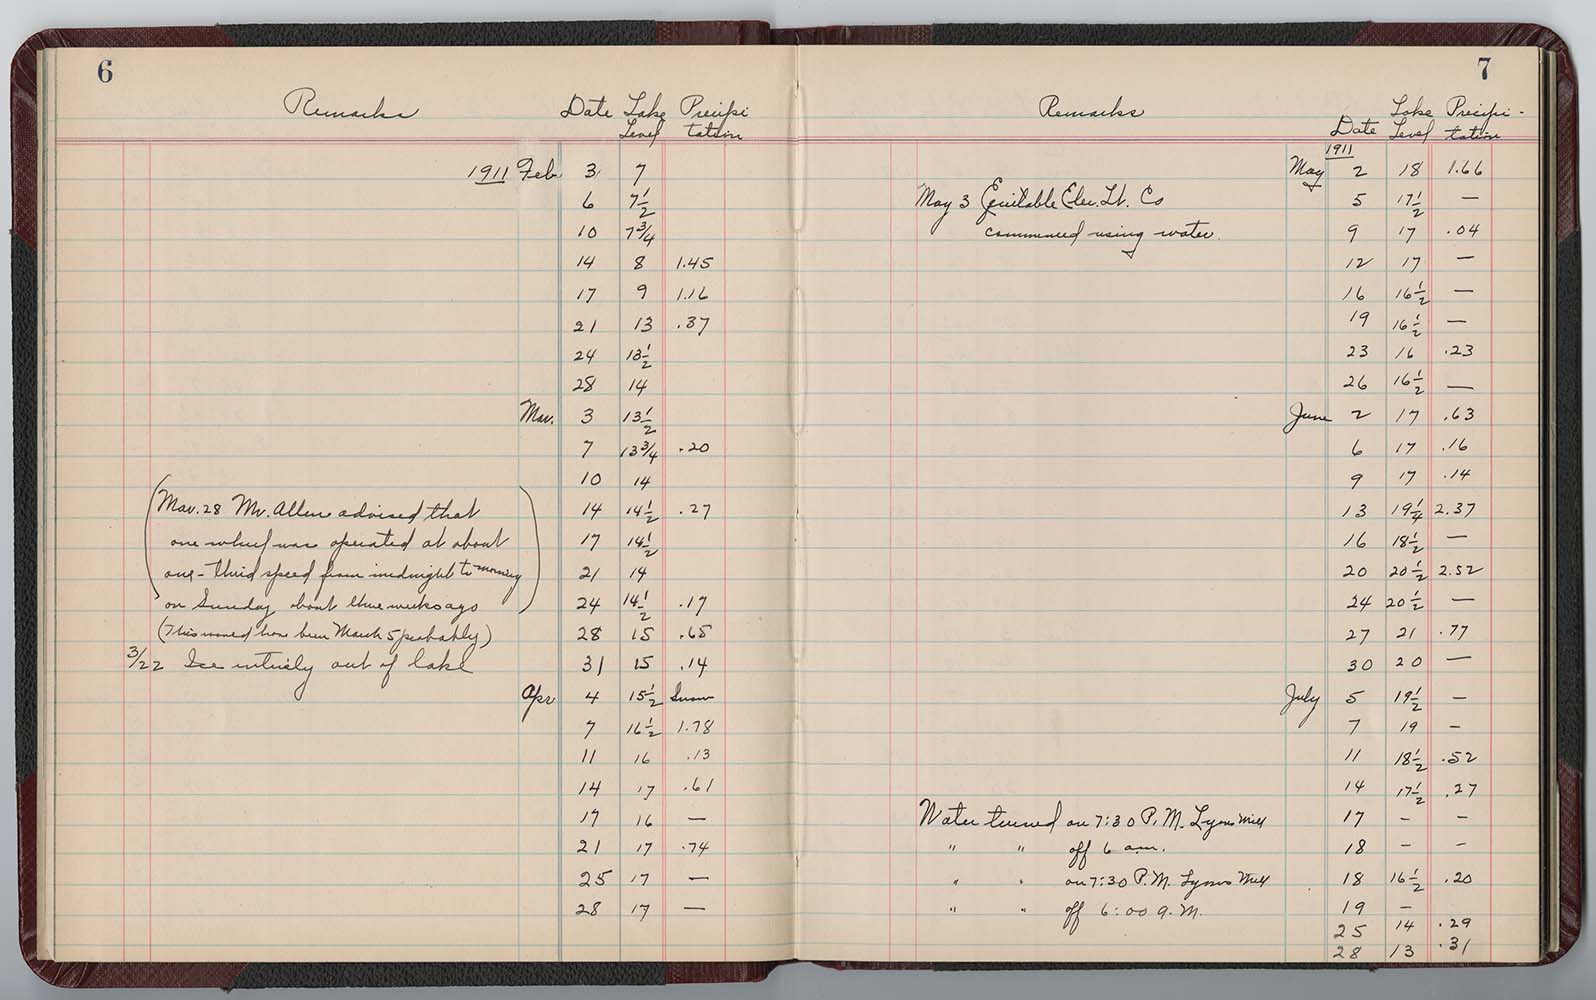 6
Remarks Date Lake Level Precipi tation
1911 Feb 3 7
6 7 1/2
10 7 3/4
14 8 1.45
17 9 1.16
21 13 .37
24 13 1/2
28 14
Mar. 3 13 1/2
7 13 3/4 .20
10 14
(Mar. 28 Mr. Allen advised that 14 14 1/2 .27
one wheel was operated at about 17 14 1/2
one-third speed from midnight to morning 21 14
on Sunday about three weeks ago) 24 14 1/2 .17
(This would have been March 5 probably) 28 15 .65
3/22 Ice entirely out of lake 31 15 .14
Apr 4 15 1/2 Snow
7 16 1/2 1.78
11 16 .13
14 17 .61
17 16 —
21 17 .74
25 17 —
28 17 —
7
Remarks Date Lake Level Precipi- tation
1911
May 2 18 1.66
May 3 Equitable Elec. Lt. Co 5 17 1/2 —
commenced using water. 9 17 .04
12 17 —
16 16 1/2 —
19 16 1/2 —
23 16 .23
26 16 1/2 —
June 2 17 .63
6 17 .16
9 17 .14
13 19 1/4 2.37
16 18 1/2 —
20 20 1/2 2.52
24 20 1/2 —
27 21 .77
30 20 —
July 5 19 1/2 —
7 19 —
11 18 1/2 .52
14 17 1/2 .27
Water turned on 7:30 P.M. Lyons Mill 17 — —
" " off 6 a.m. 18 — —
" " on 7:30 P.M. Lyons Mill 18 16 1/2 .20
" " off 6:00 A.M. 19 —
25 14 .29
28 13 .31